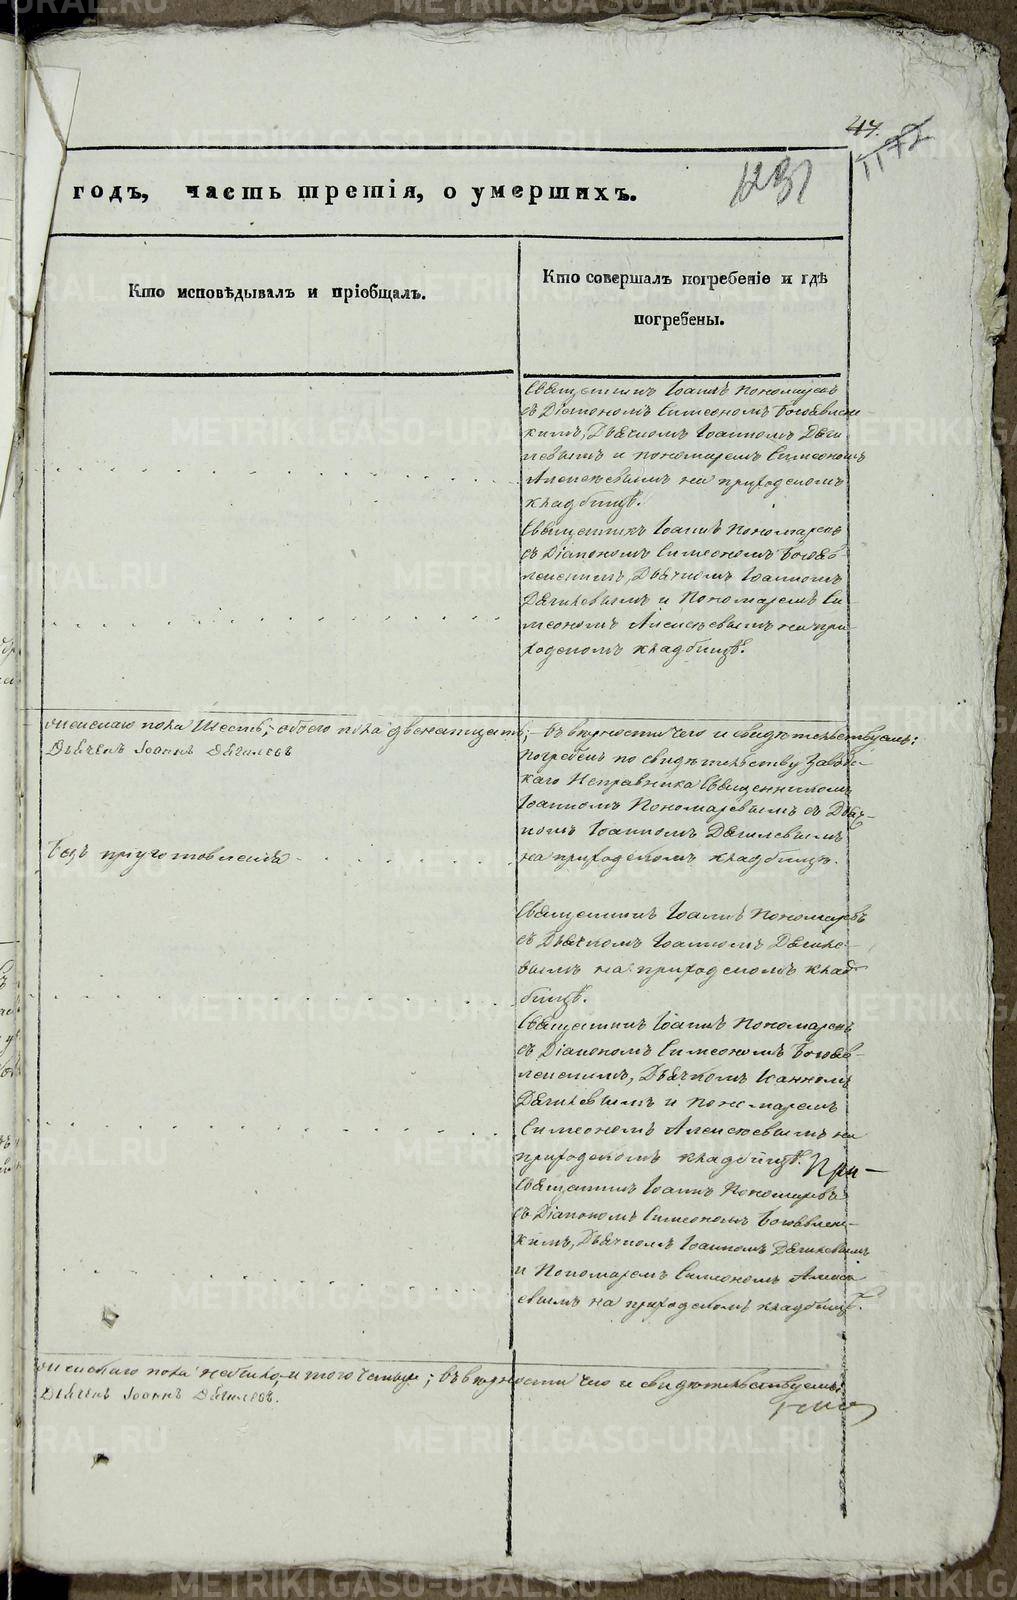 47.
1172
1231
годъ, часть третія, о умершихъ.
Кто исповѣдывалъ и пріобщалъ.
Кто совершалъ погребеніе и гдѣ
погребены.
Священникъ Іоаннъ Пономаревъ
съ Діакономъ Симеономъ Богоявленс
кимъ, Дьячкомъ Іоанномъ Дяги
левымъ и пономаремъ Симеономъ
Алексѣевымъ на приходскомъ
кладбищѣ.
Священникъ Іоаннъ Пономаревъ
съ Діакономъ Симеономъ Богояв-
ленскимъ, Дьячкомъ Іоанномъ
Дягилевымъ и Пономаремъ Си-
меономъ Алексѣевымъ на при-
ходскомъ кладбищѣ.
женскаго пола шесть, обоего пола двенатцать; въ вѣрности чего и свидѣтельствуемъ:
Дьячекъ Іоаннъ Дягилевъ
Погребенъ по свидѣтельству Заводс-
каго Исправника Священникомъ
Іоанномъ Пономаревымъ съ Дьяч-
комъ Іоанномъ Дягилевымъ
Безъ приуготовленія
на приходскомъ кладбищѣ.
Священникъ Іоаннъ Пономаревъ
съ Дьячкомъ Іоанномъ Дягиле-
вымъ на приходскомъ клад-
бищѣ.
Священникъ Іоаннъ Пономаревъ
съ Діакономъ Симеономъ Богояв-
ленскимъ, Дьячкомъ Іоанномъ
Дягилевымъ и Пономаремъ
Симеономъ Алексѣевымъ на
приходскомъ кладбищѣ. При-
Священникъ Іоаннъ Пономаревъ
съ Діакономъ Симеономъ Богоявленс-
кимъ, Дьячкомъ Іоанномъ Дягилевымъ
и Пономаремъ Симеономъ Алексѣ
евымъ на приходскомъ кладбищѣ.
женскаго пола небыло, и того четыре; въ вѣрности чего и свидѣтельствуемъ
Дьячекъ Іоаннъ Дягилевъ.
METRIKI.GASO-URAL.RU